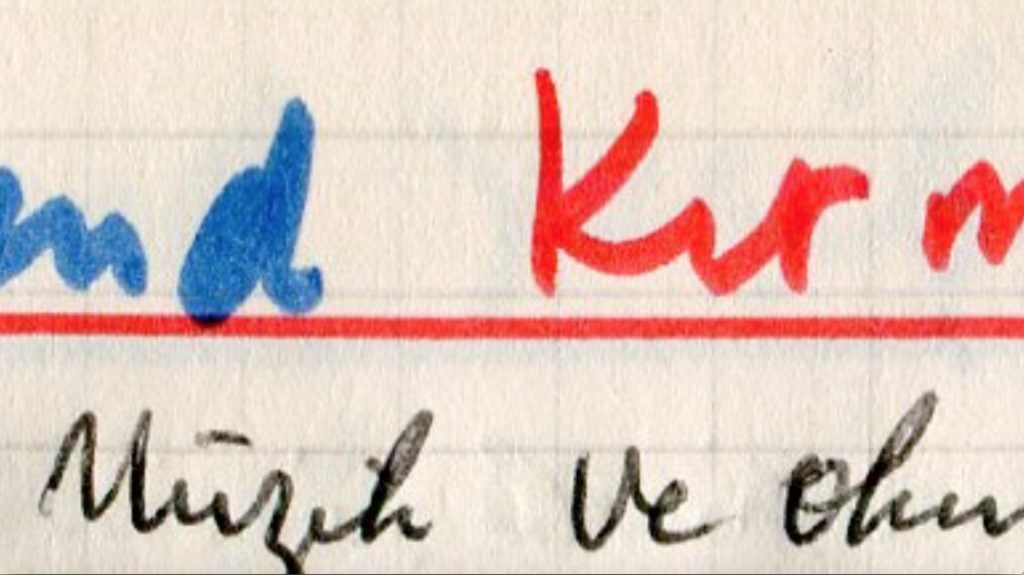 nd Kırm
Müzik ve oku